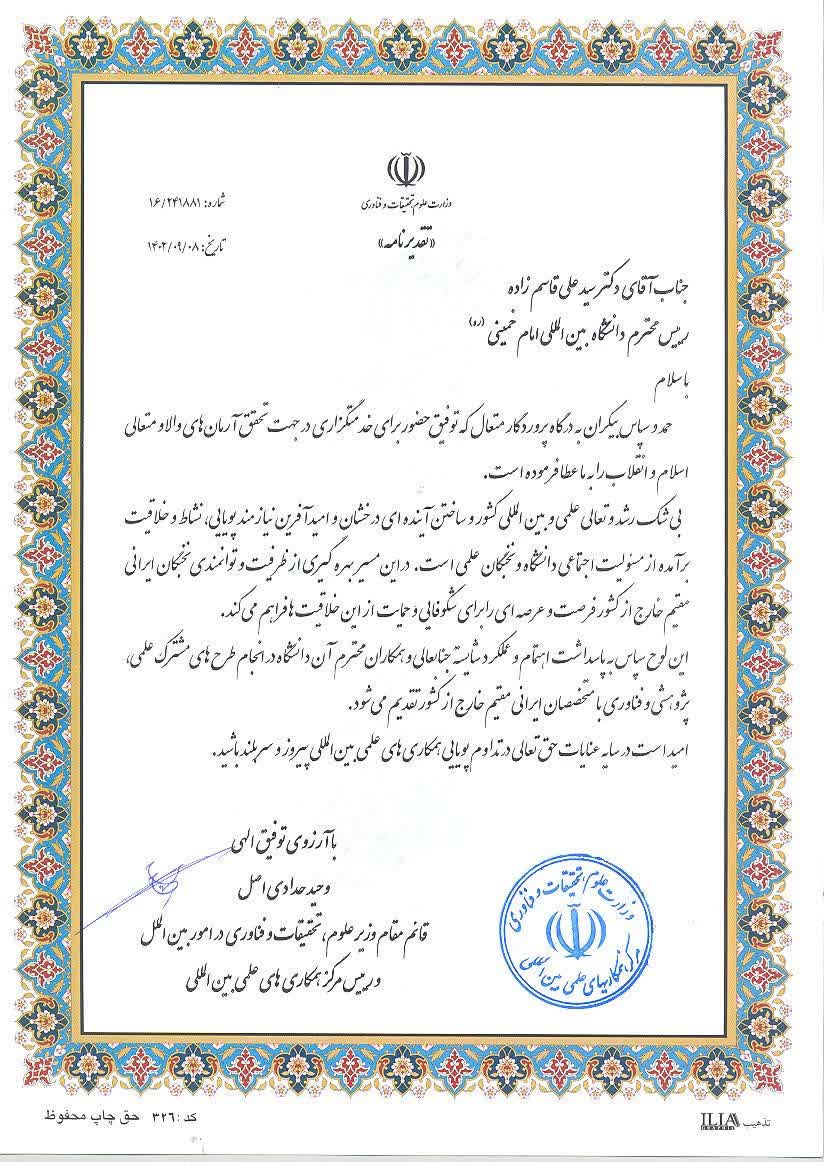 وزارت علوم، تحقیقات و فناوری
شماره: ۱۶/۲۴۱۸۸۱
«تقدیرنامه»
تاریخ: ۱۴۰۲/۰۹/۰۸
جناب آقای دکتر سید علی قاسم زاده
رییس محترم دانشگاه بین المللی امام خمینی (ره)
با سلام
حمد و سپاس بیکران به درگاه پروردگار متعال که توفیق حضور برای خدمتگزاری در جهت تحقق آرمان های والا و متعالی
اسلام و انقلاب را به ما عطا فرموده است.
بی شک رشد و تعالی علمی و بین المللی کشور و ساختن آینده ای درخشان و امید آفرین نیازمند پویایی، نشاط و خلاقیت
برآمده از مسئولیت اجتماعی دانشگاه و نخبگان علمی است. در این مسیر بهره گیری از ظرفیت و توانمندی نخبگان ایرانی
مقیم خارج از کشور فرصت و عرصه ای را برای شکوفایی و حمایت از این خلاقیت ها فراهم می کند.
این لوح سپاس به پاسداشت اهتمام و عملکرد شایسته جنابعالی و همکاران محترم آن دانشگاه در انجام طرح های مشترک علمی،
پژوهشی و فناوری با متخصصان ایرانی مقیم خارج از کشور تقدیم می شود.
امید است در سایه عنایات حق تعالی در تداوم پویایی همکاری های علمی بین المللی پیروز و سربلند باشید.
با آرزوی توفیق الهی
وحید حدادی اصل
قائم مقام وزیر علوم، تحقیقات و فناوری در امور بین الملل
و رییس مرکز همکاری های علمی بین المللی
وزارت علوم، تحقیقات و فناوری
مرکز همکاریهای علمی بین المللی
کد: ۳۲۶ حق چاپ محفوظ
تذهیب ILIA GRAPHIC